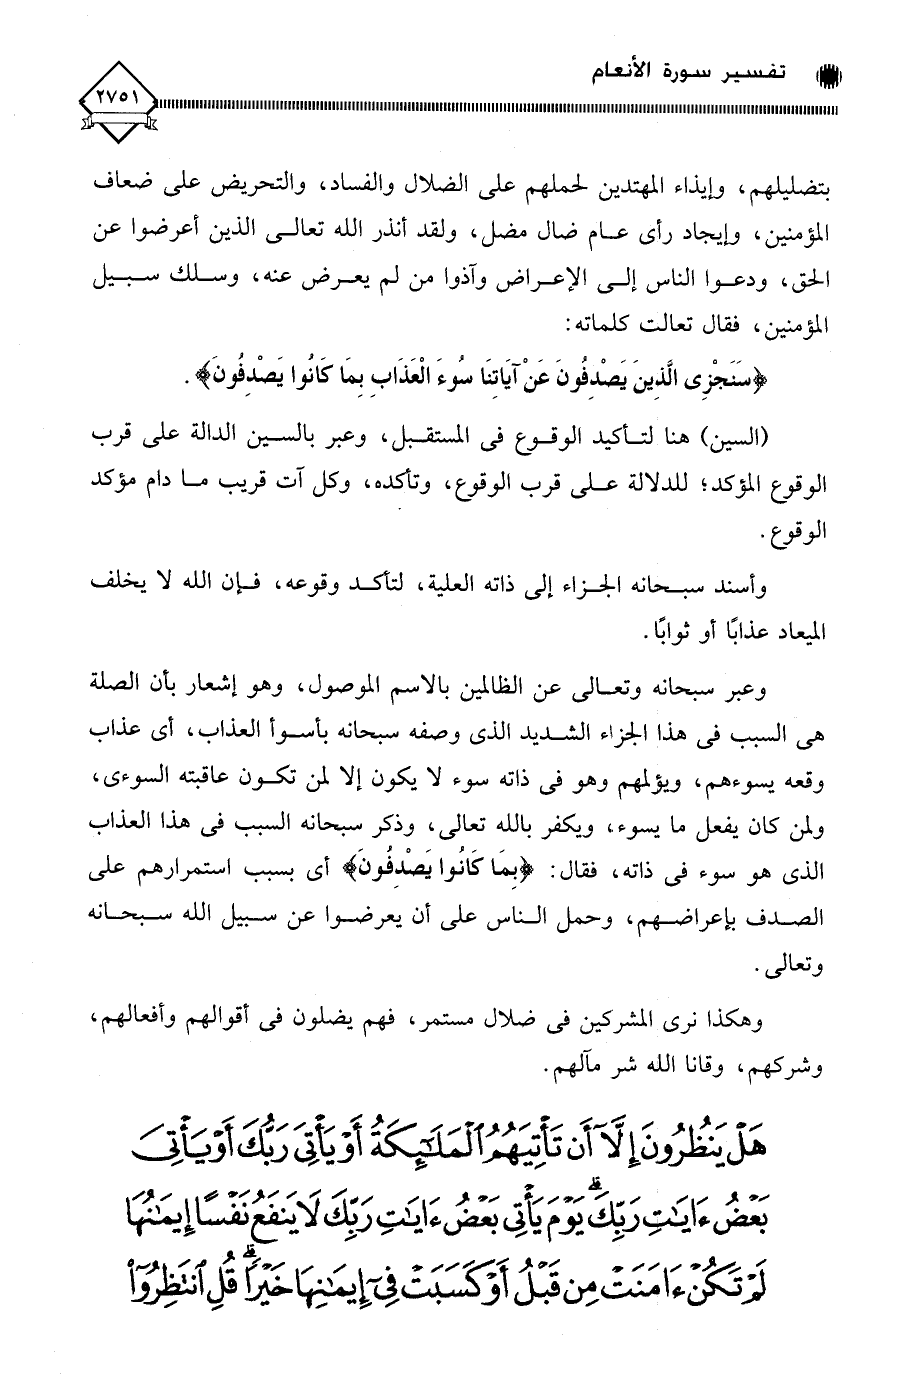 تفسير سورة الأنعام
٢٧٥١
بتضليلهم، وإيذاء المهتدين لحملهم على الضلال والفساد، والتحريض على ضعاف
المؤمنين، وإيجاد رأى عام ضال مضل، ولقد أنذر الله تعالى الذين أعرضوا عن
الحق، ودعوا الناس إلى الإعراض وآذوا من لم يعرض عنه، وسلك سبيل
المؤمنين، فقال تعالت كلماته:
﴿سَنَجْزِى الَّذِينَ يَصْدِفُونَ عَنْ آيَاتِنَا سُوءَ الْعَذَابِ بِمَا كَانُوا يَصْدِفُونَ﴾.
(السين) هنا لتأكيد الوقوع فى المستقبل، وعبر بالسين الدالة على قرب
الوقوع المؤكد؛ للدلالة على قرب الوقوع، وتأكده، وكل آت قريب ما دام مؤكد
الوقوع.
وأسند سبحانه الجزاء إلى ذاته العلية، لتأكد وقوعه، فإن الله لا يخلف
الميعاد عذابًا أو ثوابًا.
وعبر سبحانه وتعالى عن الظالمين بالاسم الموصول، وهو إشعار بأن الصلة
هى السبب فى هذا الجزاء الشديد الذى وصفه سبحانه بأسوأ العذاب، أى عذاب
وقعه يسوءهم، ويؤلمهم وهو فى ذاته سوء لا يكون إلا لمن تكون عاقبته السوءى،
ولمن كان يفعل ما يسوء، ويكفر بالله تعالى، وذكر سبحانه السبب فى هذا العذاب
الذى هو سوء فى ذاته، فقال: ﴿بِمَا كَانُوا يَصْدِفُونَ﴾ أى بسبب استمرارهم على
الصدف بإعراضهم، وحمل الناس على أن يعرضوا عن سبيل الله سبحانه
وتعالى.
وهكذا نرى المشركين فى ضلال مستمر، فهم يضلون فى أقوالهم وأفعالهم،
وشركهم، وقانا الله شر مآلهم.
هَلْ يَنظُرُونَ إِلَّآ أَن تَأْتِيَهُمُ ٱلْمَلَٰٓئِكَةُ أَوْ يَأْتِىَ رَبُّكَ أَوْ يَأْتِىَ
بَعْضُ ءَايَٰتِ رَبِّكَ ۗ يَوْمَ يَأْتِى بَعْضُ ءَايَٰتِ رَبِّكَ لَا يَنفَعُ نَفْسًا إِيمَٰنُهَا
لَمْ تَكُنْ ءَامَنَتْ مِن قَبْلُ أَوْ كَسَبَتْ فِىٓ إِيمَٰنِهَا خَيْرًا ۗ قُلِ ٱنتَظِرُوٓا۟